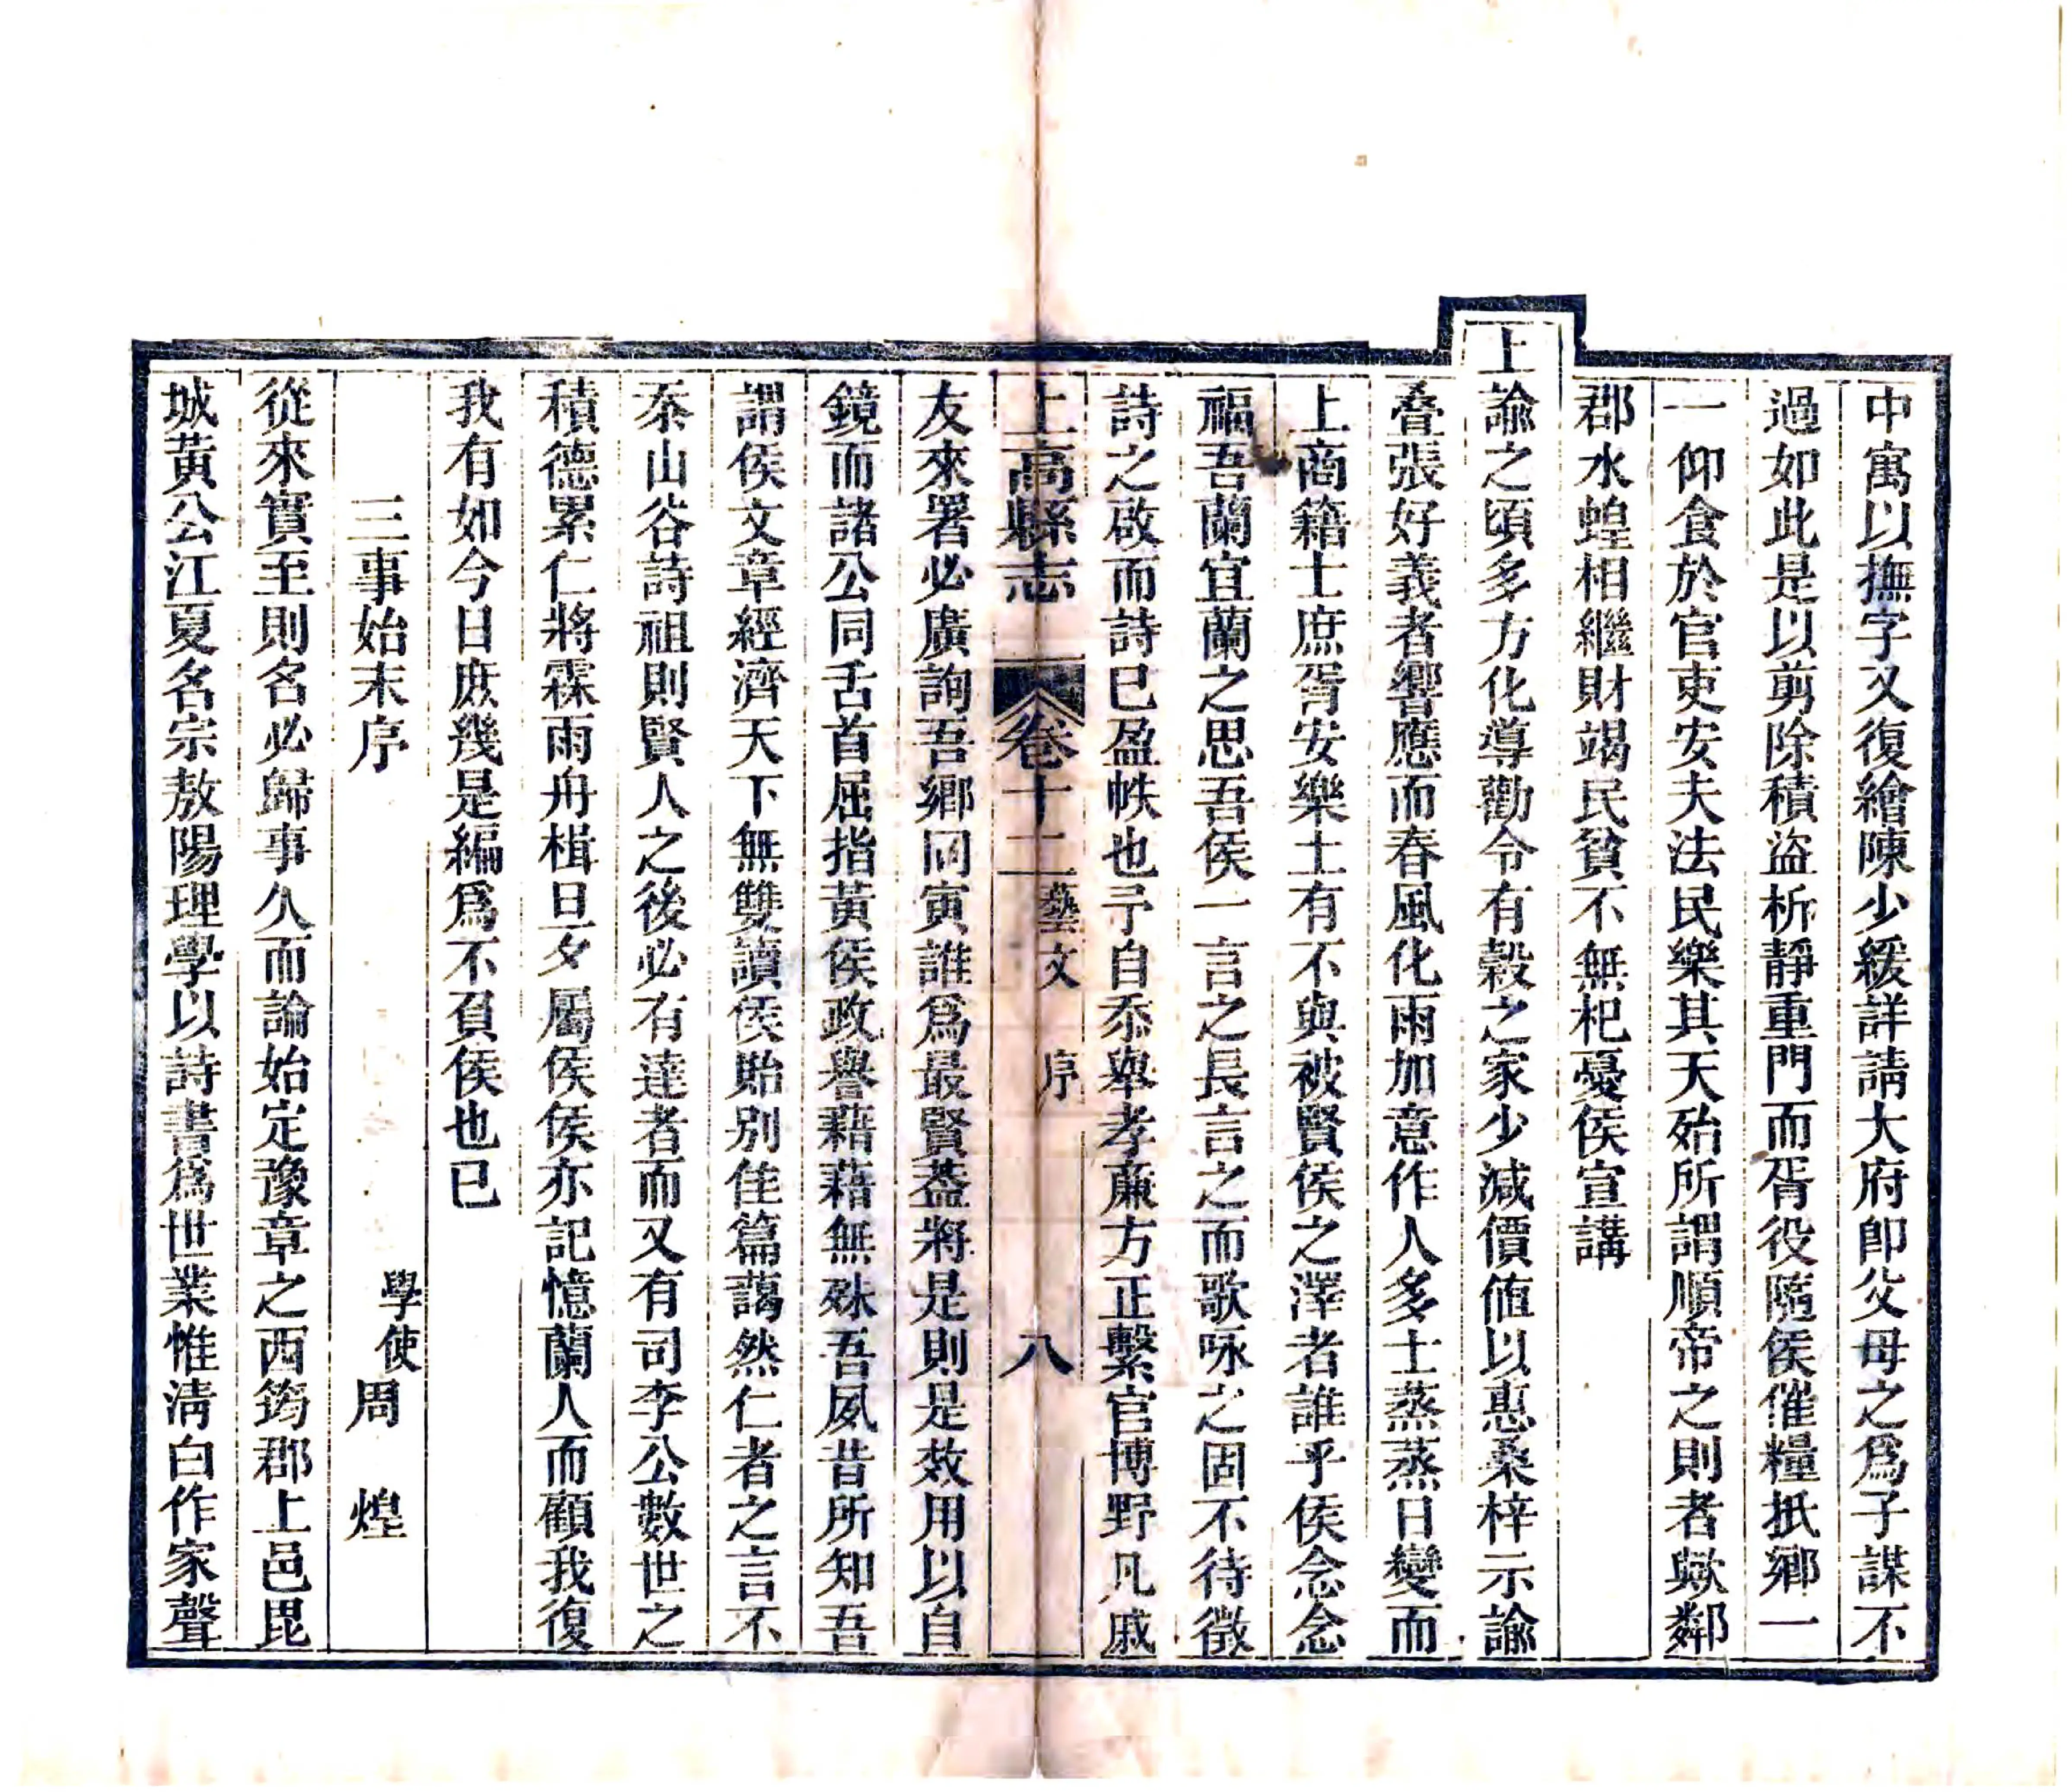 中寓以撫字又復繪陳少緩詳請大府卽父母之爲子謀不
過如此是以剪除積盜析靜重門而胥役隨侯催糧抵鄉一
一仰食於官吏安夫法民樂其天殆所謂順帝之則者歟鄰
郡水蝗相繼財竭民貧不無杞憂侯宣講
上諭之頃多方化導勸令有穀之家少減價值以惠桑梓示諭
叠張好義者響應而春風化雨加意作人多士蒸蒸日變而
上商籍士庶胥安樂土有不與被賢侯之澤者誰乎侯念念
福吾蘭宜蘭之思吾侯一言之長言之而歌咏之固不待徵
詩之啟而詩已盈帙也予自忝舉孝廉方正繫官博野凡戚
上高縣志 卷十二 藝文 序 八
友來署必廣詢吾鄉同寅誰爲最賢葢將是則是效用以自
鏡而諸公同舌首屈指黃侯政譽藉藉無殊吾夙昔所知吾
謂侯文章經濟天下無雙讀侯貽別佳篇藹然仁者之言不
忝山谷詩祖則賢人之後必有達者而又有司李公數世之
積德累仁將霖雨舟楫旦夕屬侯侯亦記憶蘭人而顧我復
我有如今日庶幾是編爲不負侯也已
三事始末序
學使周煌
從來實至則名必歸事久而論始定豫章之西筠郡上邑毘
城黃公江夏名宗敖陽理學以詩書爲世業惟淸白作家聲